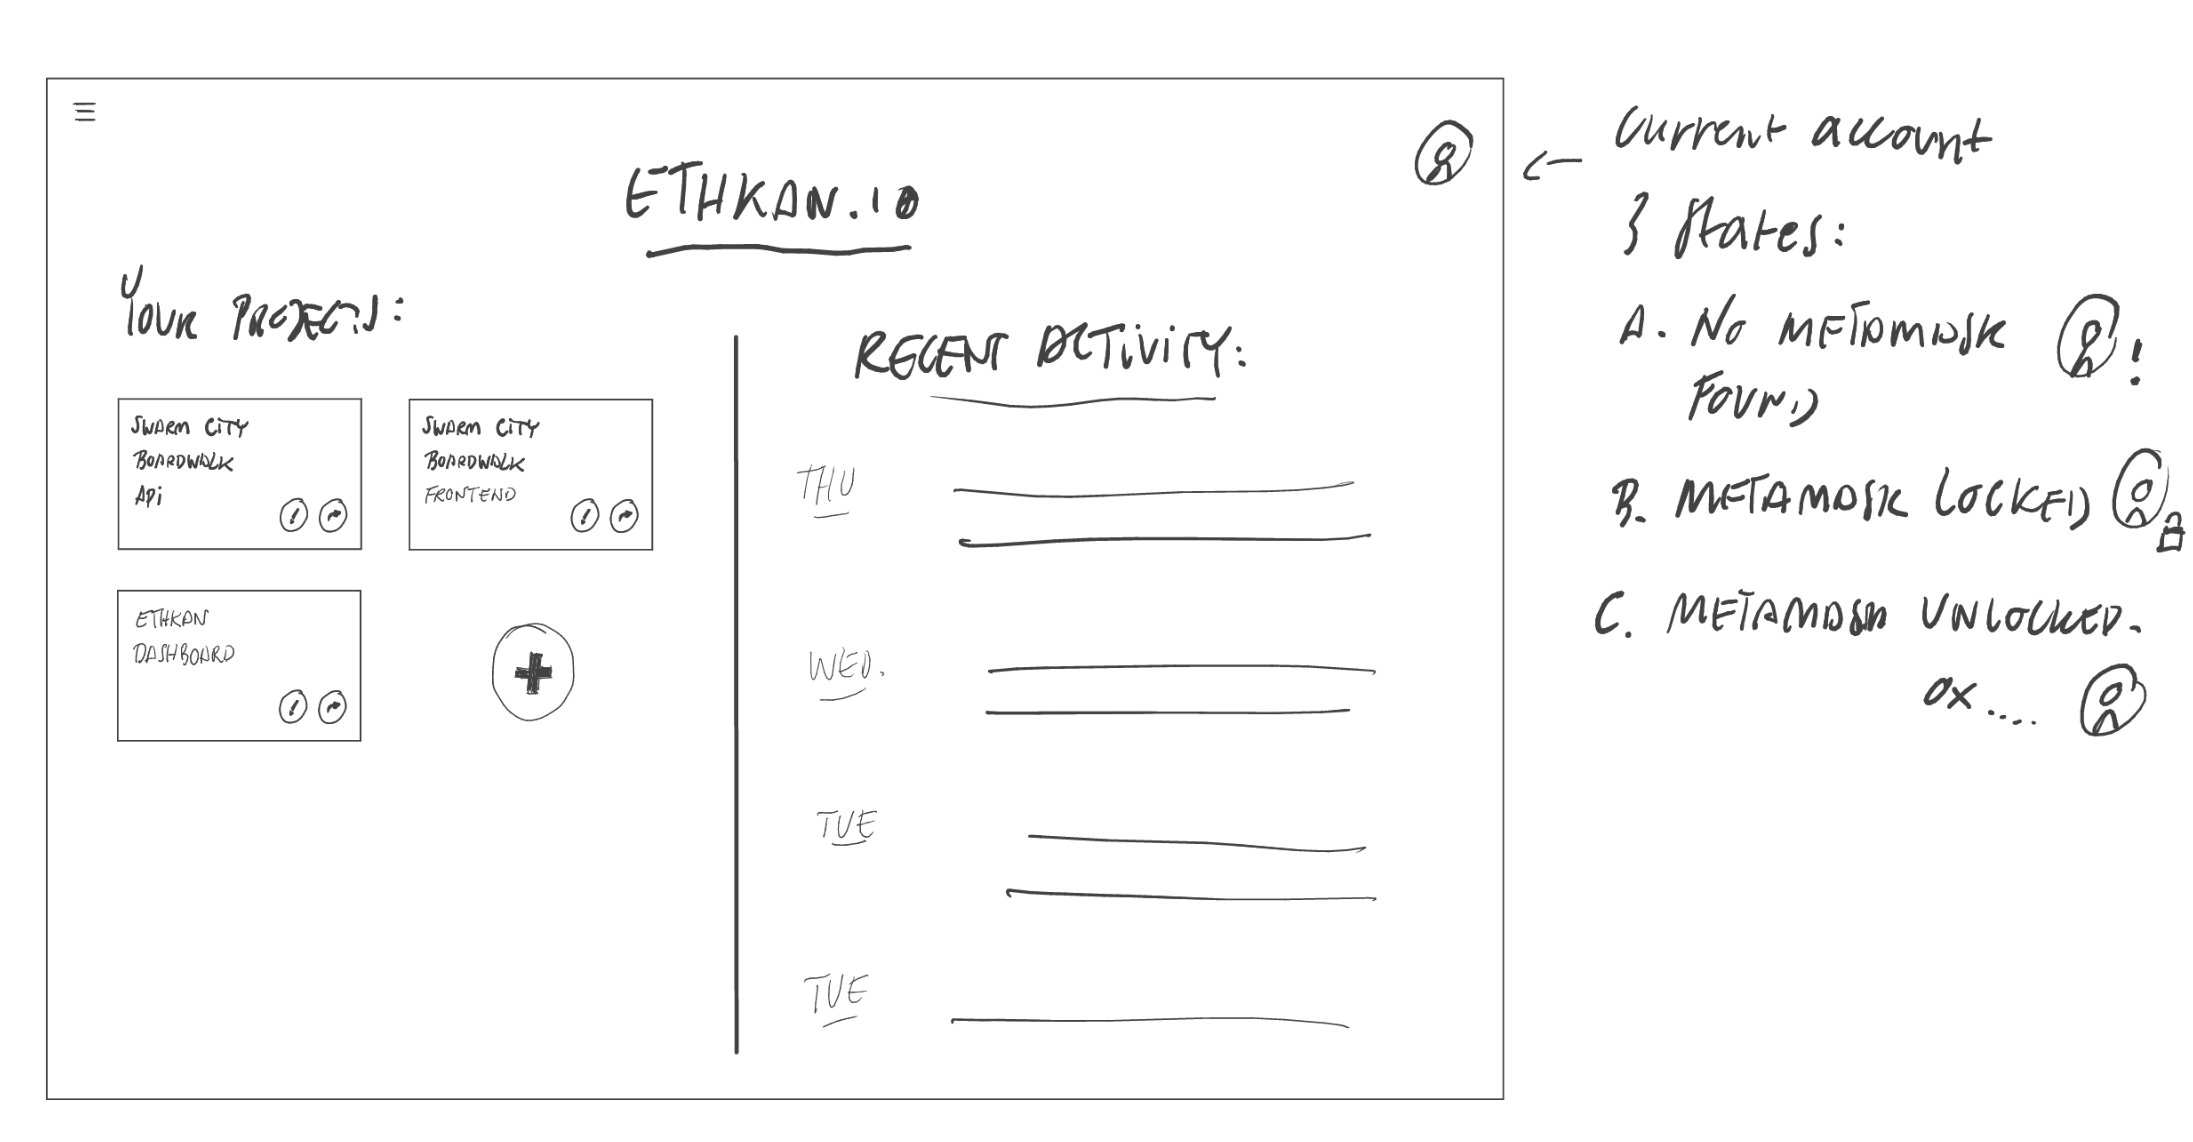 ETHKAN.IO
YOUR PROJECTS:
SWARM CITY
BOARDWALK
API
SWARM CITY
BOARDWALK
FRONTEND
ETHKAN
DASHBOARD
RECENT ACTIVITY:
THU
WED.
TUE
TUE
Current account
3 States:
A. NO METAMASK
FOUND
!
B. METAMASK LOCKED
C. METAMASK UNLOCKED.
0x.....